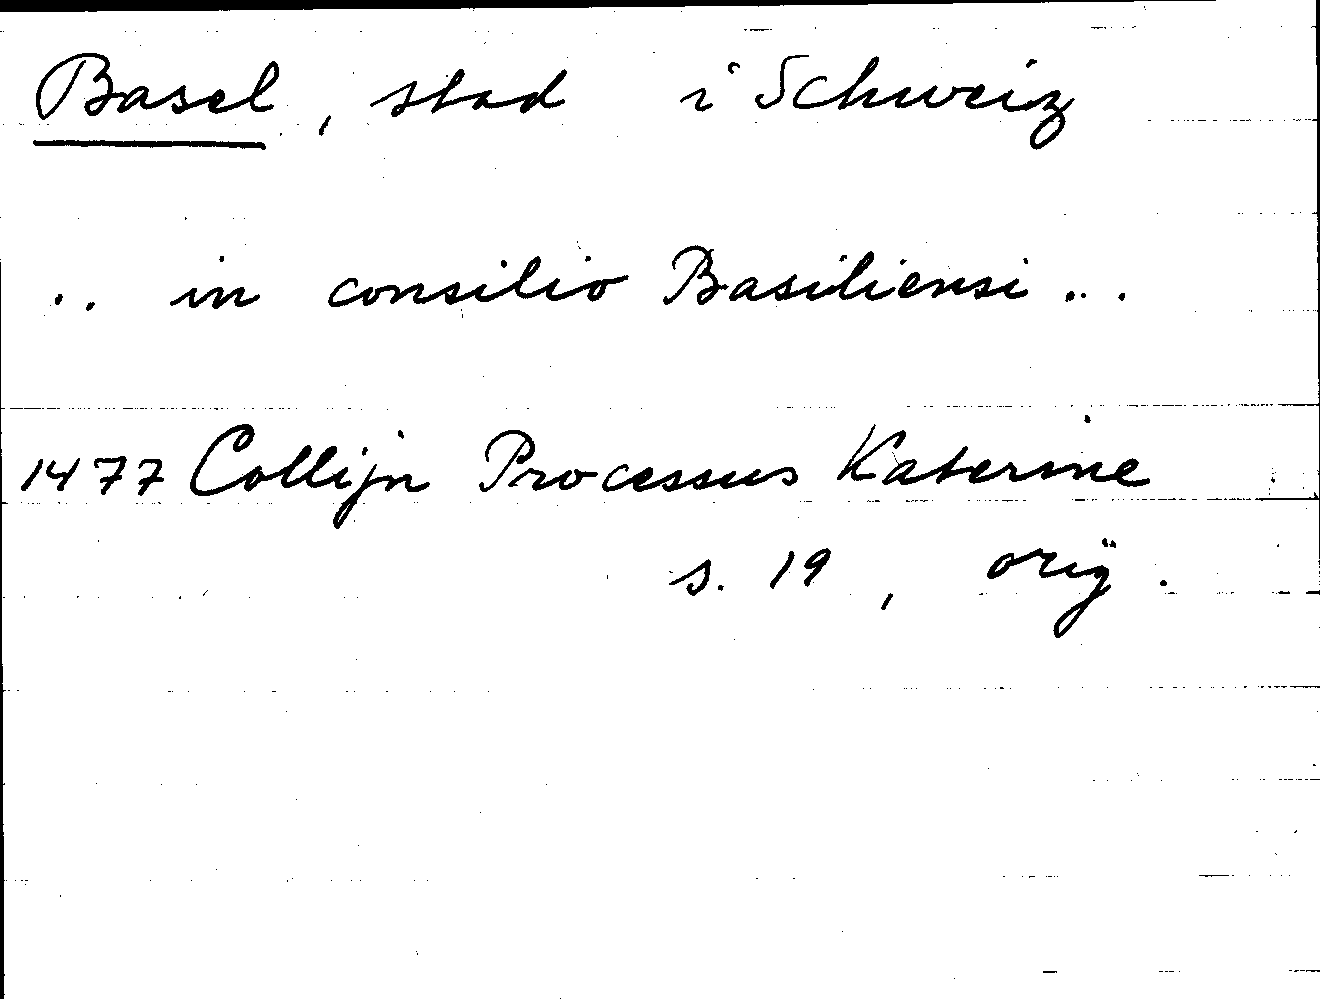 Basel, stad i Schweiz
.. in consilio Basiliensi ...
1477 Collijn Processus Katerine
s. 19, orig.